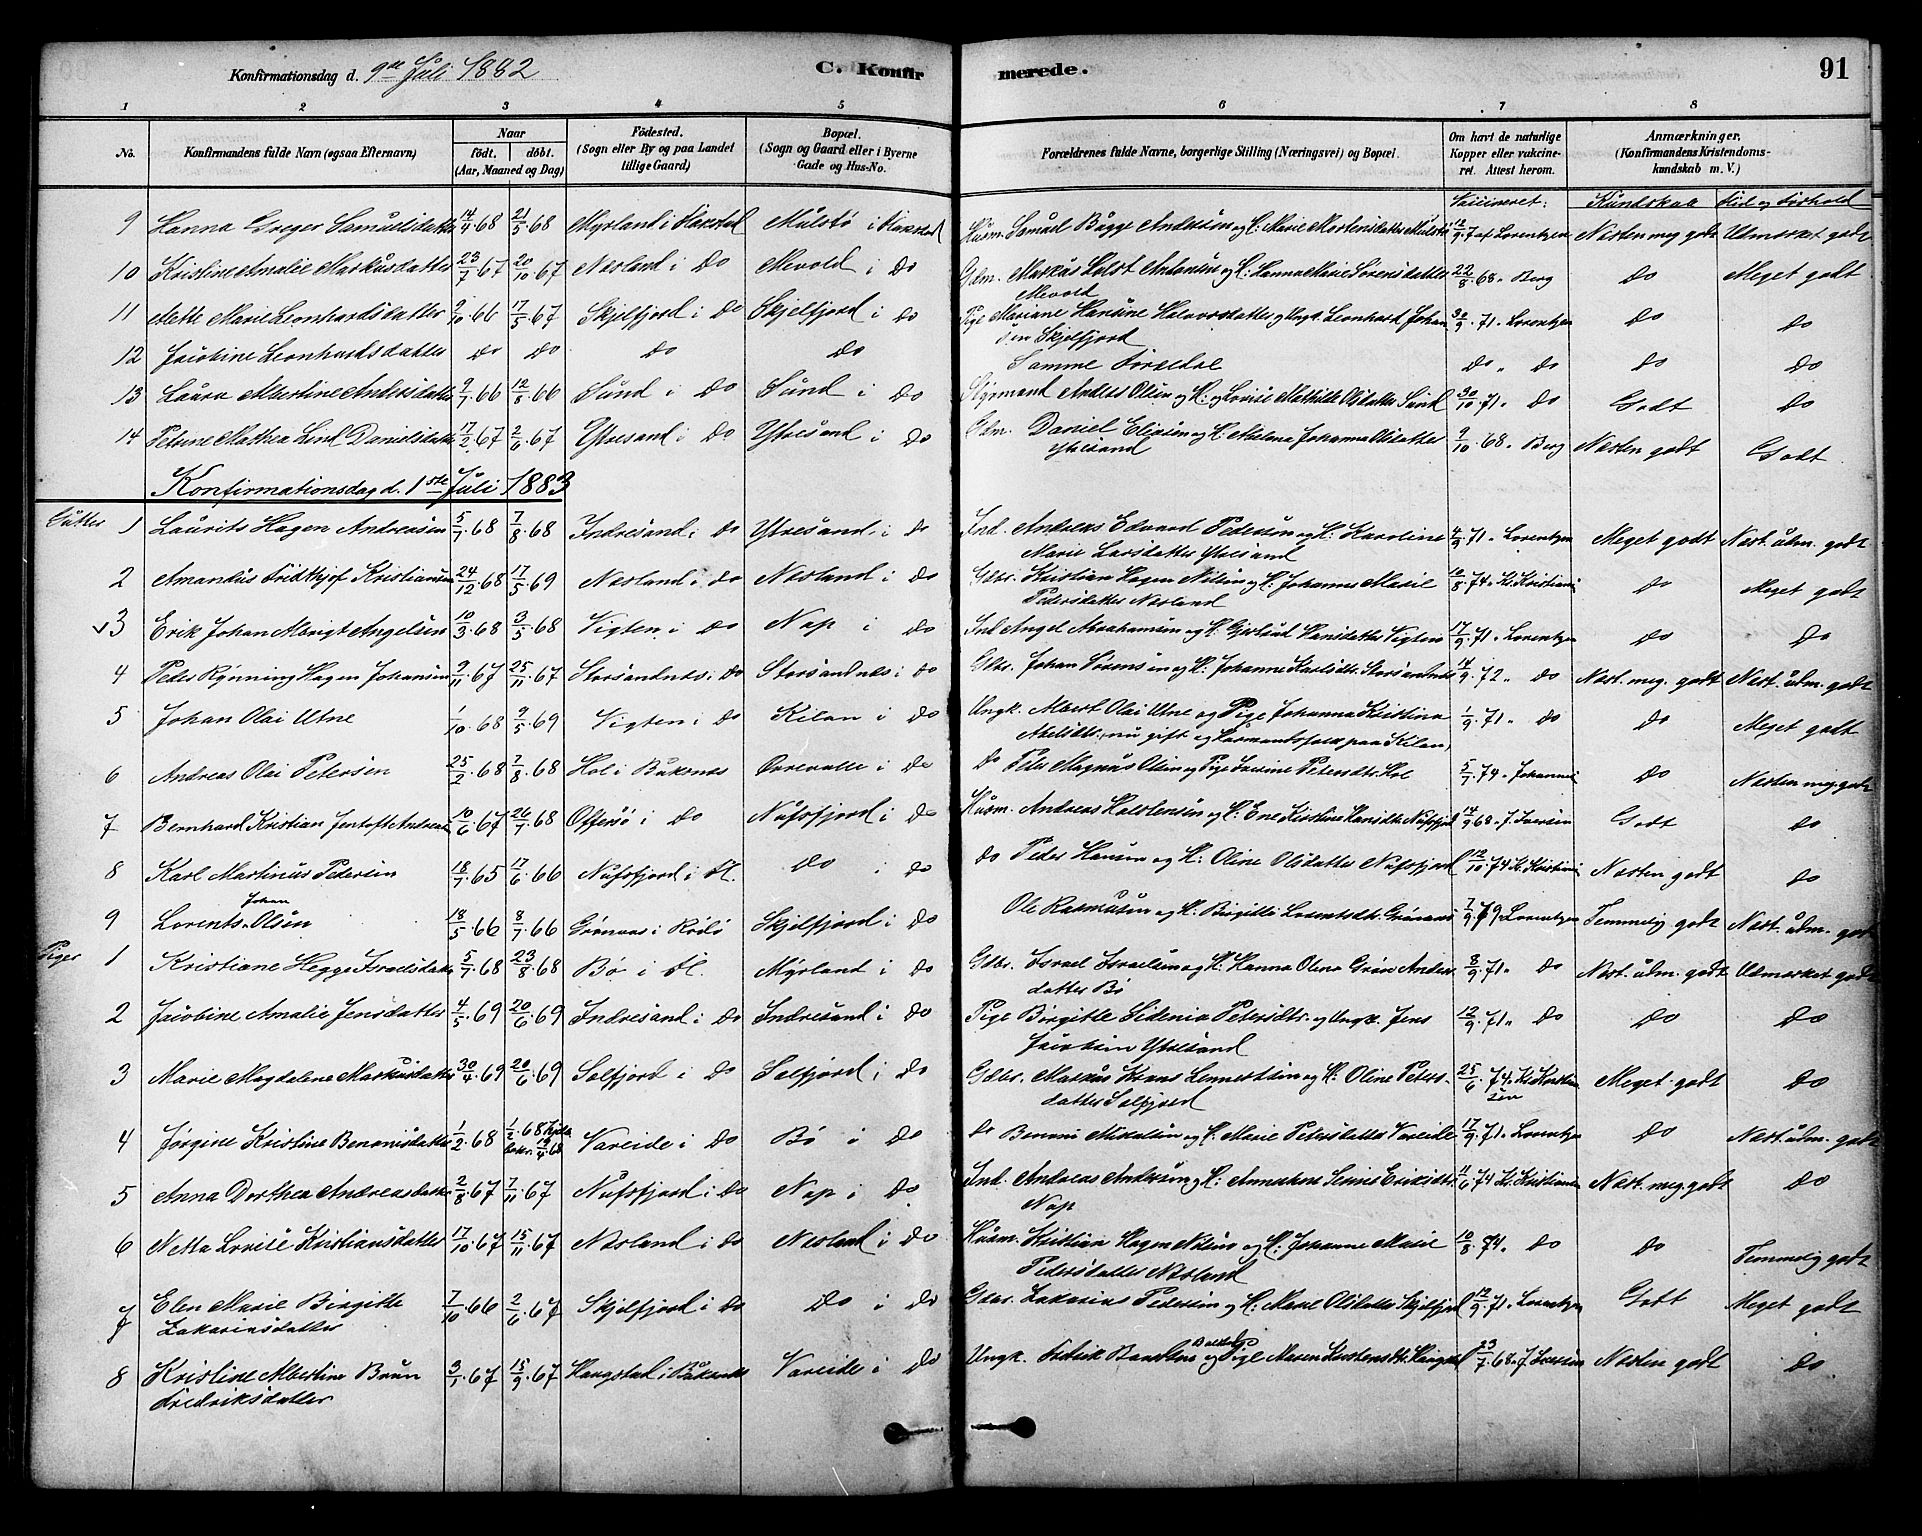 Konfirmationsdag d. 9de Juli 1882 C. Konfirmerede. 91
1 2 3 4 5 6 7 8
No. Konfirmandens fulde Navn (ogsaa Efternavn) Naar født. døbt. (Aar, Maaned og Dag) Fødested. (Sogn eller By og paa Landet tillige Gaard) Bopæl. (Sogn og Gaard eller i Byerne Gade og Hus-No. Forældrenes fulde Navne, borgerlige Stilling (Næringsvei) og Bopæl. Om havt de naturlige Kopper eller vakcineret. Attest herom. Anmærkninger. (Konfirmandens Kristendomskundskab m. V.)
Vaccineret: Kundskab Flid og Forhold
9 Hanna Greger Samuelsdatter 14/4 68 21/5 68 Myrland i Flakstad Mulstø i Flakstad Husm. Samuel Bugge Andersen og H. Marie Mortensdatter Mulstø 12/9 7 af Lorentzen Næsten meg godt Udmærket godt
10 Kristine Amalie Markusdatter 23/7 67 20/10 67 Næsland i Do Mevold i Do Gdm. Markus Antonsen og H. Hanna Marie Sørensdatter 22/8 68 " Berg Do Meget godt
Mevold
11 Mette Marie Leonhardsdatter 9/10 66 17/5 67 Skjelfjord i Do Skjelfjord i Do Pige Mariane Hansine Halvorsdatter og Ungk. Leonhard Johan 30/9 71 " Lorentzen Do Do
sen Skjelfjord
12 Jacobine Leonhardsdatter do do do do Samme Forældre do " do do do
13 Laura Albertine Andersdatter 9/7 66 12/8 66 Sund i Do Sund i Do Andreas Olsen og H. Lovise Mathilde Olsdatter Sund 30/10 71 " Do Godt Do
14 Petrine Mathea Lind Danielsdatter 17/2 67 2/6 67 Ytresand i Do Ytresand i Do Gdm. Daniel Eliasen og H. Malena Johanna Olsdatter 9/10 68 " Berg Næsten godt Godt
Ytresand
Konfirmationsdag d. 1ste Juli 1883
Gutter 1 Laurits Hagen Andreasen 5/7 68 7/8 68 Indresand i Do Ytresand i Do Ind. Andreas Edvard Pedersen og H. Karoline 4/9 71 " Lorentzen Meget godt Næst. udm. godt
Marie Larsdatter Ytresand
2 Amandus Fridthjof Kristiansen 24/12 68 17/5 69 Næsland i Do Næsland i Do Gdbr. Kristian Hagen Nilsen og H. Johanna Marie 10/8 74 " K. Kristians Do Meget godt
Pedersdatter Næsland
3 Erik Johan Albrigt Angelsen 10/3 68 3/5 68 Vigten i Do Nap i Do Ind. Angel Abrahamsen og H. Gjertrud Hansdatter Vigten 17/9 71 " Lorentzen Do Do
4 Peder Rønning Hagen Johansen 9/11 67 25/11 67 Storsandnes i Do Storsandnes i Do Gdbr. Johan Sørensen og H. Johanne Karlsdtr. Storsandnes 14/9 72 " do Næst. meg. godt Næst. udm. godt
5 Johan Olai Utne 1/10 68 9/5 69 Vigten i Do Kilan i Do Ungk. Albert Olai Utne og Pige Johanna Kristina 1/9 71 " do Do Meget godt
Axelsdtr., nu gift og Husmandsfolk paa Kilan
6 Andreas Olai Petersen 25/2 68 7/8 68 Hol i Buksnes i Do do Peder Magnus Olsen og Pige Petersdtr. Hol 5/7 74 " Johannes Do Næsten meg. godt
7 Bernhard Kristian Jentoft Andreas 10/6 67 26/7 68 Offersø i Do Nufsfjord i Do Husm. Andreas Halstensen og H. Ene Kirstine Hansdtr. Nufsfjord 14/9 68 " J. Iversen Godt Do
8 Karl Martinus Petersen 18/7 65 17/6 66 Nufsfjord i Fl. Do i Do do Peder Hansen og H. Oline Olsdatter Nufsfjord 12/10 74 K. Kristians Næsten godt Do
9 Lorents Johan Olsen 18/5 66 8/7 66 Grønnæs i Rødø Skjelfjord i Do Ole Rasmussen og H. Birgitte Lorentsdtr. Grønnæs 7/9 79 " Lorentzen Temmelig godt Næst. udm. godt
Piger 1 Kristiane Hegge Israelsdatter 5/7 68 23/8 68 Bø i Fl. Myrland i Do Gdbr. Israel Israelsen og H. Hanna Olena Grøn Anders 8/9 71 " Do Næst. udm. godt Udmærket godt
datter Bø
2 Jacobine Amalie Jensdatter 4/5 69 20/6 69 Indresand i Do Indresand i Do Pige Birgitte Sidenia Petersdtr. og Ungk. Jens 12/9 71 " Do Do Do
Jacobsen Ytresand
3 Marie Magdalene Markusdatter 30/4 69 20/6 69 Solfjord i Do Solfjord i Do Gdbr. Markus Krans Lennertsen og H. Oline Peters- 25/6 74 K. Kristian Meget godt Do
datter Solfjord sen
4 Jørgine Kristine Benonisdatter 1/2 68 1/2 68 19/4 68 Vareide i Do Bø i Do do Benoni Mikalsen og H. Marie Petersdatter Vareide 17/9 71 " Lorentzen Do Næst. udm. godt
5 Anna Dorthea Andreasdatter 2/8 67 7/11 67 Nufsfjord i Do Nap i Do Ind. Andreas Andersen og H. Eriksdtr. 11/6 74 K. Kristiansen Næst. meg. godt Do
Nap
6 Netta Lovise Kristiansdatter 17/10 67 15/11 67 Næsland i Do Næsland i Do Husm. Kristian Hagen Nilsen og H. Johanne Marie 10/8 74 " Do Do Temmelig godt
Pedersdatter Næsland
7 Elen Marie Birgitte 7/10 66 2/6 67 Skjelfjord i Do Do i Do Gdbr. Zakarias Pedersen og H. Marie Olsdatter Skjelfjord 12/9 71 " Lorentzen Godt Meget godt
Zakariasdatter
8 Kristine Albertine Bruun 3/1 67 15/9 67 Haugstad i Buksnes Vareide i Do Ungk. Fedrik og Pige Maren Karstensdtr. Haugstad 23/7 68 " J. Iversen Næsten godt Do
Fredriksdatter